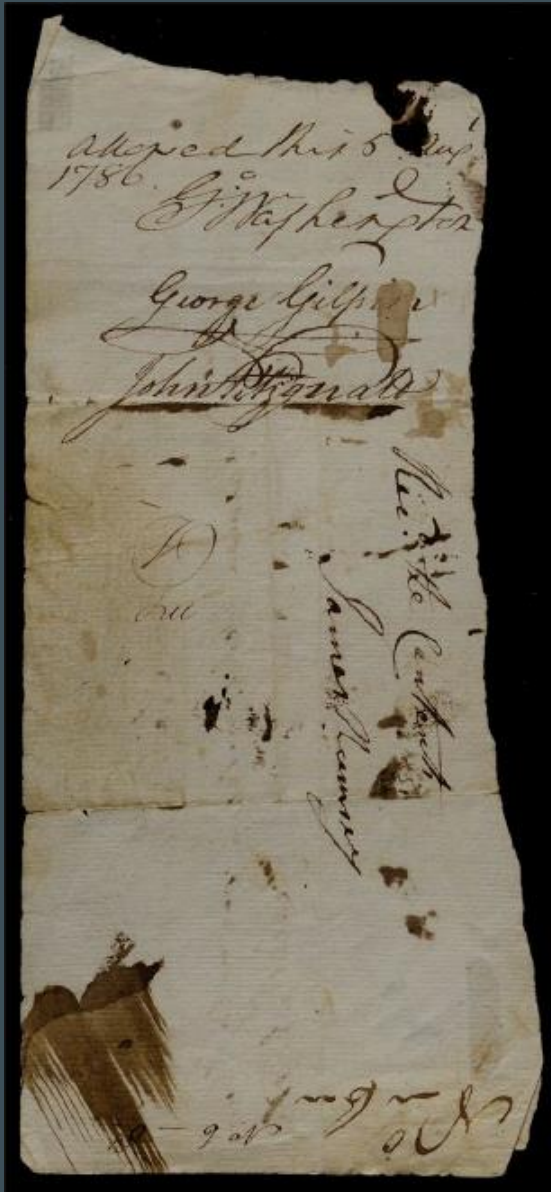 allowed this 5 Aug
1786.
Go Washington
George Gilpin
John Fitzgerald
Recd. the Contents
James Rumsey
No 6